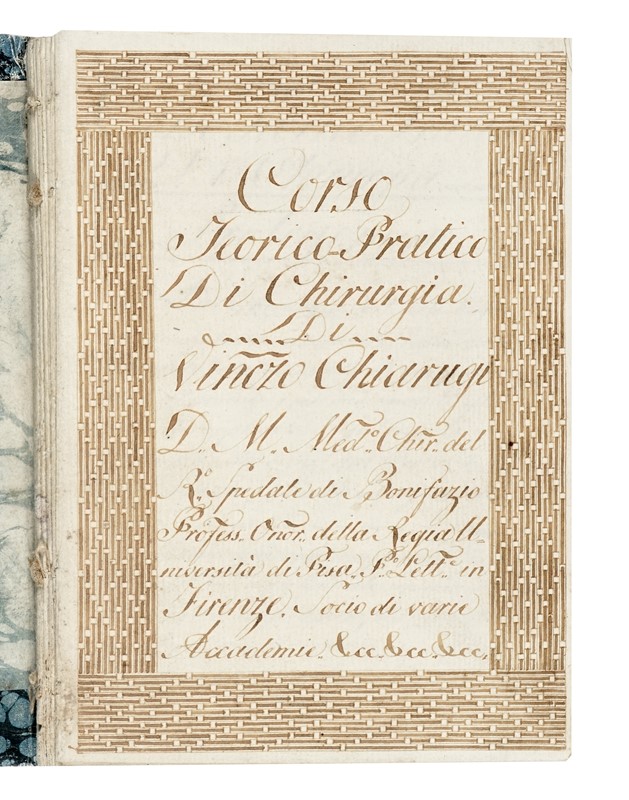 Corso
Teorico-Pratico
Di Chirurgia.
Di
Vinc̃zo Chiarugi
D. M. Med.º Chir. del
R.º Spedale di Bonifazio
Profess. Onor. della Regia U-
niversità di Pisa. P.º Lett.º in
Firenze. Socio di varie
Accademie. &cc. &cc. &cc.